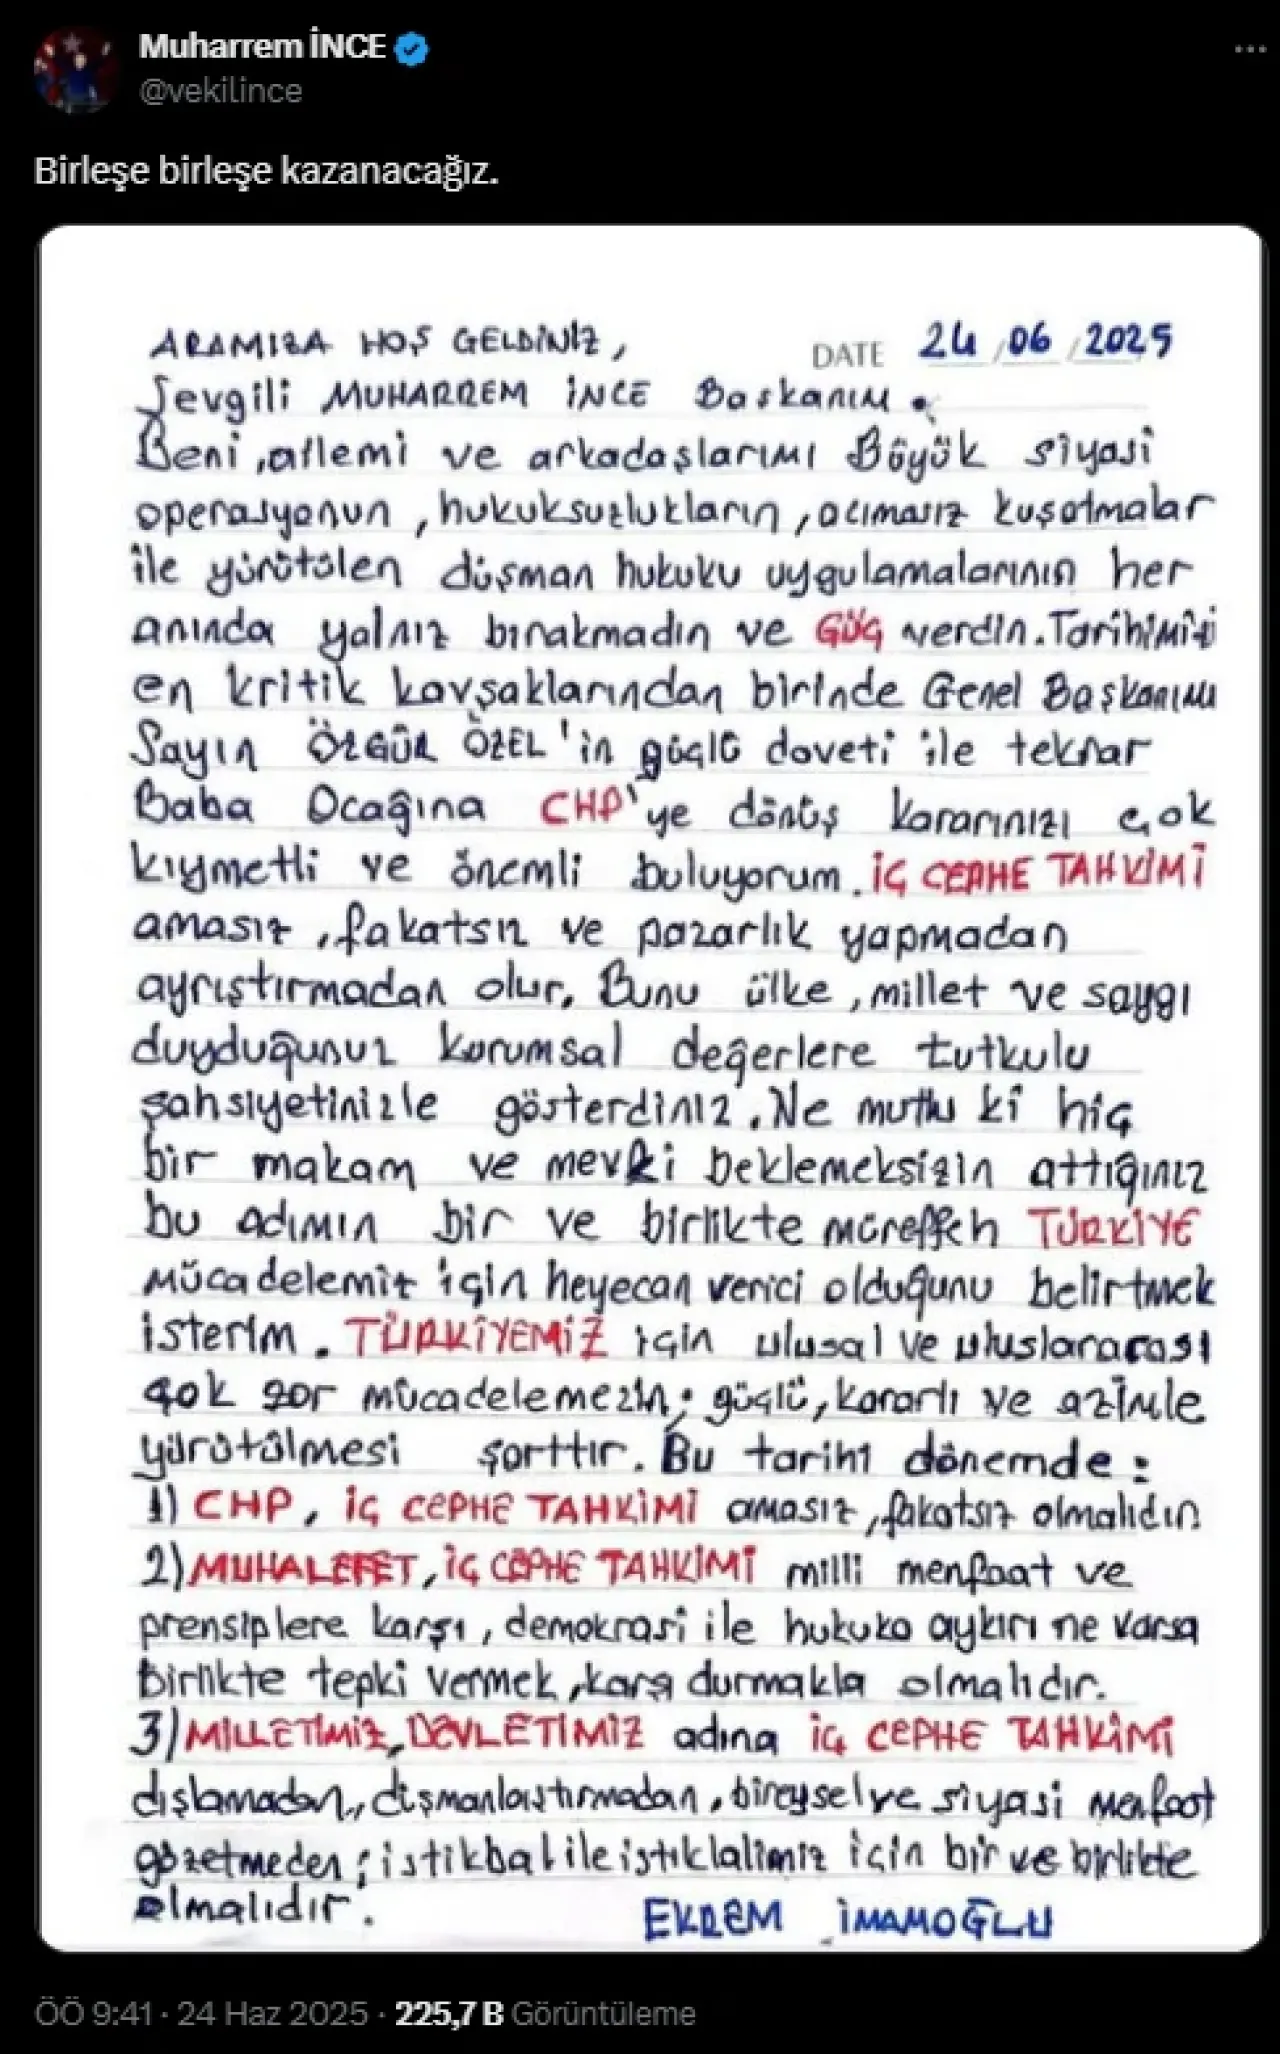 Muharrem İNCE
@vekilince
Birleşe birleşe kazanacağız.
ARAMIZA HOŞ GELDİNİZ,
DATE 24/06/2025
Sevgili MUHARREM İNCE Başkanım.
Beni, ailemi ve arkadaşlarımı Büyük siyasi
operasyonun, hukuksuzlukların, acımasız kuşatmalar
ile yürütülen düşman hukuku uygulamalarının her
anında yalnız bırakmadın ve GÜÇ verdin. Tarihimizi
en kritik kavşaklarından birinde Genel Başkanımı
Sayın ÖZGÜR ÖZEL'in güçlü daveti ile tekrar
Baba Ocağına CHP'ye dönüş kararınızı çok
kıymetli ve önemli buluyorum. İÇ CEPHE TAHKİMİ
amasız, fakatsız ve pazarlık yapmadan
ayrıştırmadan olur. Bunu ülke, millet ve saygı
duyduğunuz kurumsal değerlere tutkulu
şahsiyetinizle gösterdiniz. Ne mutlu ki hiç
bir makam ve mevki beklemeksizin attığınız
bu adımın bir ve birlikte müreffeh TÜRKİYE
mücadelemiz için heyecan verici olduğunu belirtmek
isterim. TÜRKİYEMİZ için ulusal ve uluslararası
çok zor mücadelemezin; güçlü, kararlı ve azimle
yürütülmesi şarttır. Bu tarihi dönemde:
1) CHP, İÇ CEPHE TAHKİMİ amasız, fakatsız olmalıdır.
2) MUHALEFET, İÇ CEPHE TAHKİMİ milli menfaat ve
prensiplere karşı, demokrasi ile hukuka aykırı ne varsa
Birlikte tepki vermek, karşı durmakla olmalıdır.
3) MİLLETİMİZ, DEVLETİMİZ adına İÇ CEPHE TAHKİMİ
dışlamadan, düşmanlaştırmadan, bireysel ve siyasi menfaat
gözetmeden; istikbal ile istiklalimiz için bir ve birlikte
olmalıdır.
EKREM İMAMOĞLU
ÖÖ 9:41 · 24 Haz 2025 · 225,7 B Görüntüleme